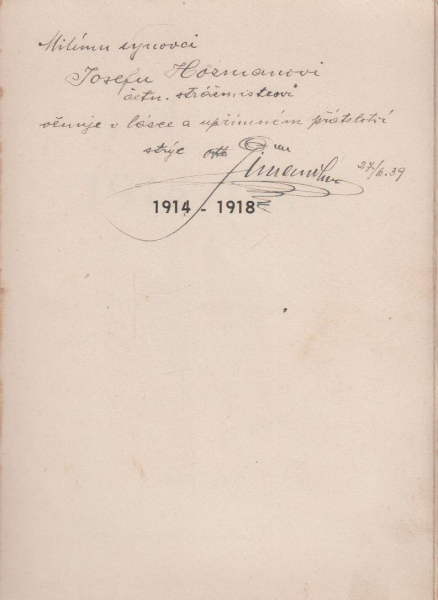 Milému synovci
Josefu Hosmanovi
četn. strážmistrovi
věnuje v lásce a upřímném přátelství
strýc
27/6.39
1914 - 1918